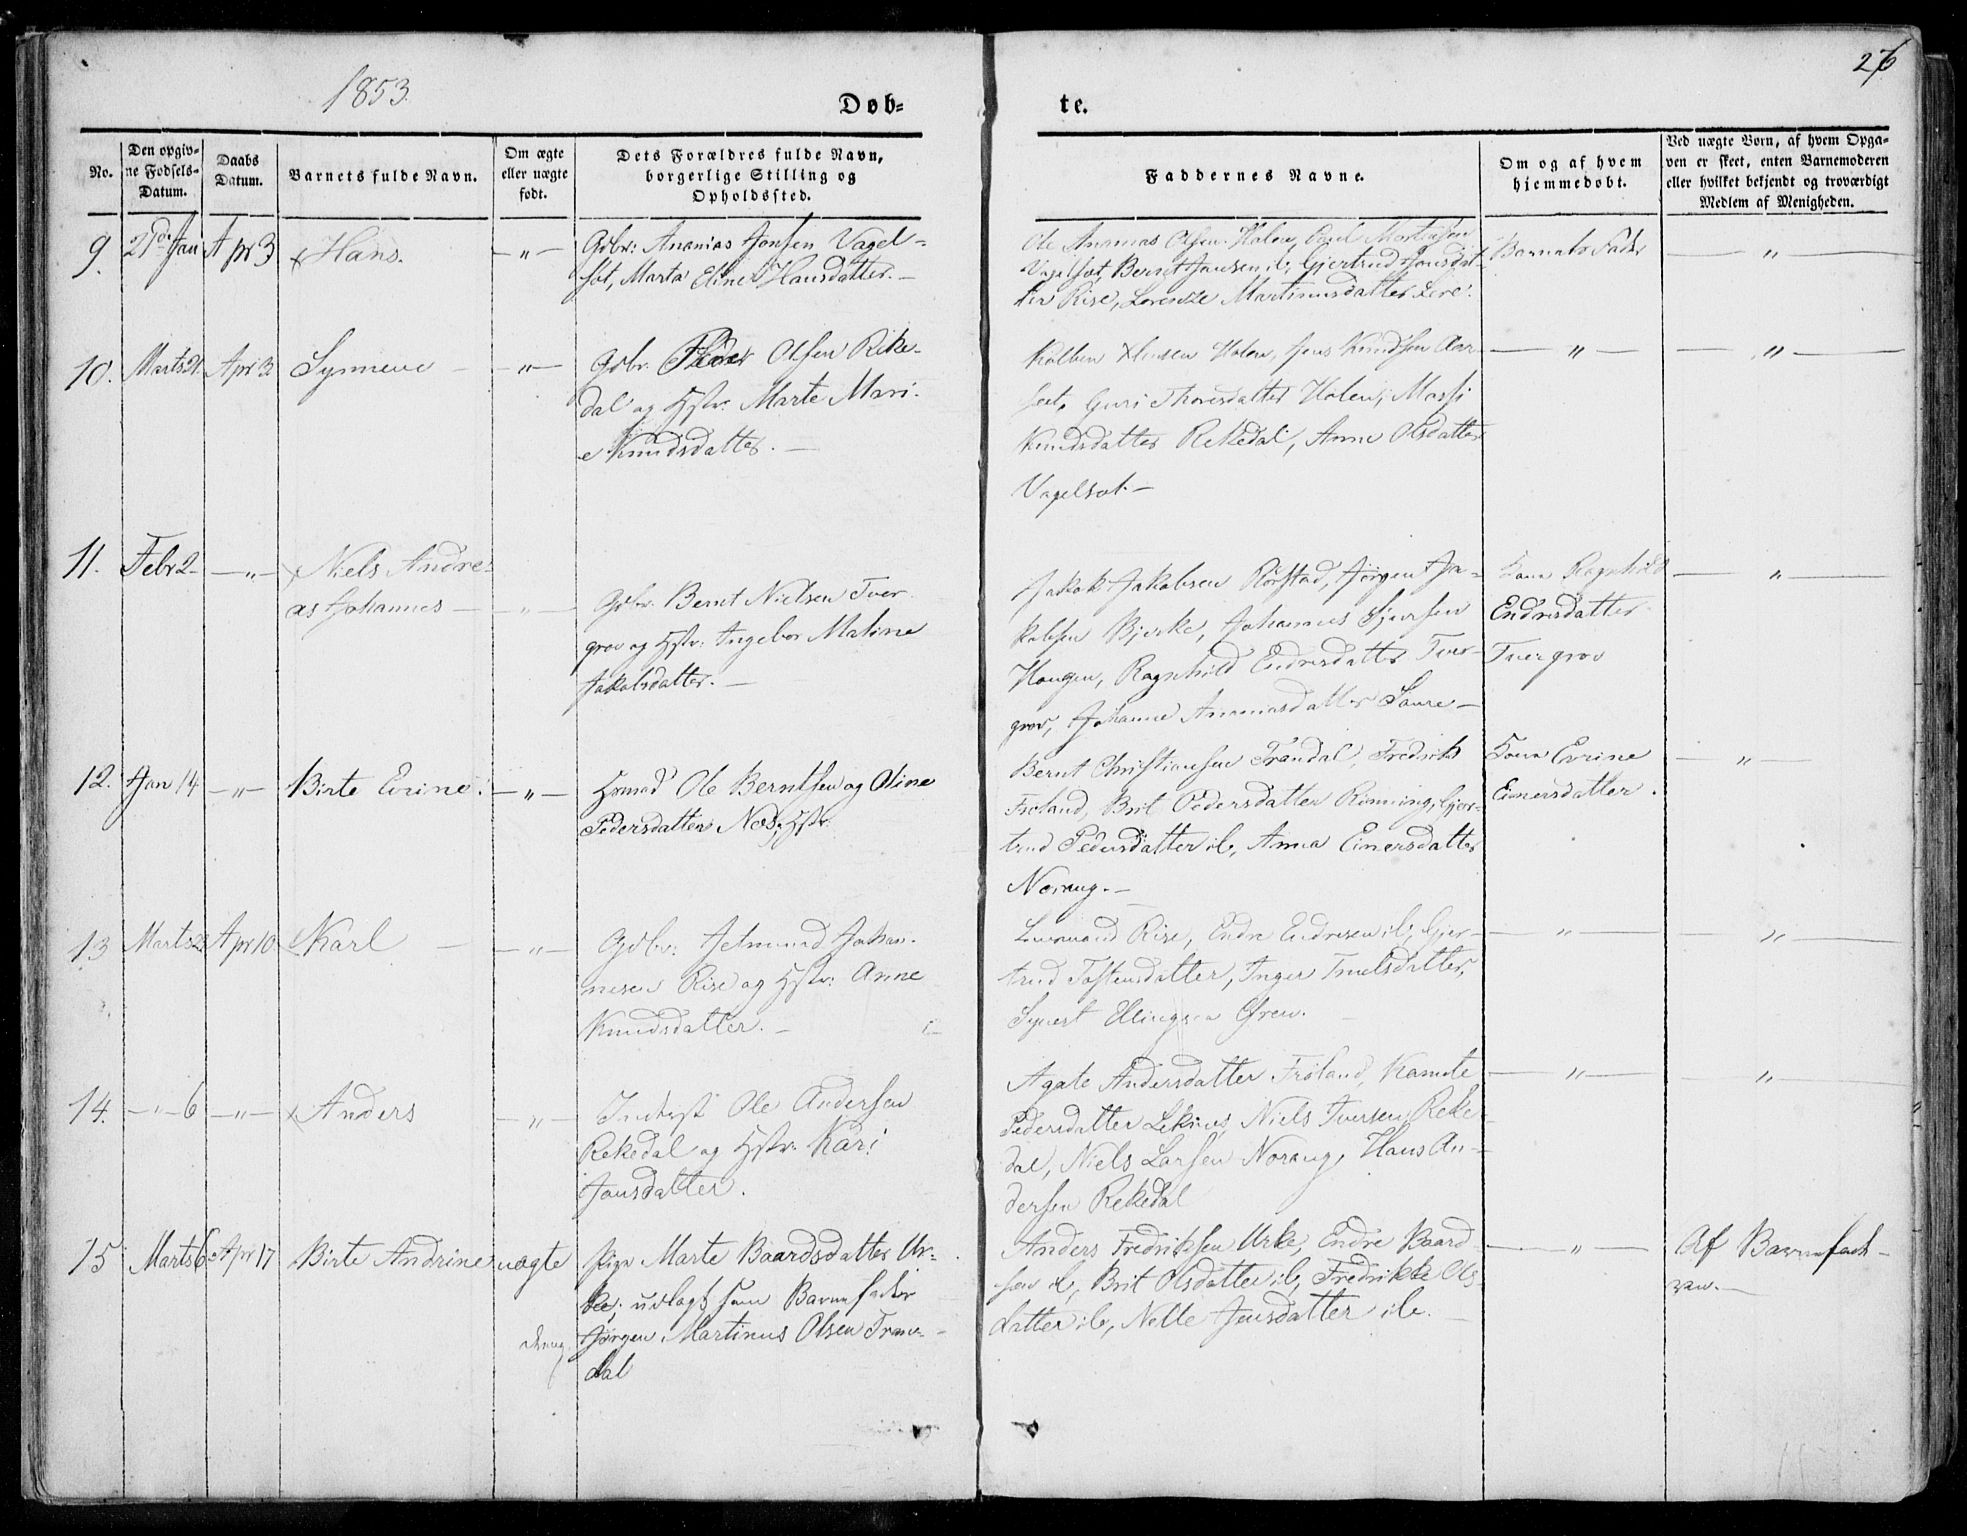 1853.
Døb-
te.
26
No.
Den opgiv-
ne Fødsels-
Datum.
Daabs
Datum.
Barnets fulde Navn.
Om ægte
eller uægte
født.
Dets Forældres fulde Navn,
borgerlige Stilling og
Opholdssted.
Faddernes Navne.
Om og af hvem
hjemmedøbt.
Ved uægte Børn, af hvem Opga-
ven er skeet, enten Barnemoderen
eller hvilket bekjendt og troværdigt
Medlem af Menigheden.
9. Jan Apr 3 Hans. — „ —
Gdbr: Ananias Jonsen Vagel-
sæt, Marta Eline Hansdatter. —
Ole Ananias Olsen Holen, Martinsen
Vagelsæt, Bernt Jansen ib, Gjertrud Jonsdat-
ter Rise, Martinusdatter
Barnets Fader — „ —
10. Marts 21. Apr 3 Synneve — — „ —
Gdbr. Peder Olsen Rike-
dal og Hstr: Marte Mari-
e Knudsdatter. —
Holen, Jens Knudsen Aar-
set, Guri Thoresdatter Holen, Massi
Knudsdatter Rekedal, Anne Olsdatter
Vagelsæt. —
— „ — — „ —
11. Febr 2 — „ — Niels Andre-
as Johannes — — „ —
Gdbr. Bernt Nielsen Tver-
grov og Hstr: Ingebor Maline
Jakobsdatter. —
Jakob Jakobsen Rørstad, Jørgen Ja-
kobsen Bjerke, Johannes Sjursen
Haugen, Ragnhild Endresdatter Tver-
grov, Johanne Ananiasdatter Saure —
Ragnhild
Endresdatter
Tvergrov
— „ —
12. Jan 14 — „ — Birte Evrine. — „ —
Husmd Ole Berntsen og Oline
Pedersdatter Nes, Hstr.
Bernt Christiansen Trandal, Fredrik
Frøland, Brit Pedersdatter Rønning, Gjer-
trud Pedersdatter ib, Anna Einersdatter
Norang. —
Evrine
Einersdatter.
— „ —
13 Marts Apr 10 Karl — — „ —
Gdbr: Jetmund Johan-
nesen Rise og Hstr: Anne
Knudsdatter. —
Rise, Endre Endresen ib, Gjer-
trud Tostensdatter, Inger Truelsdatter,
Synert Ellingsen —
— „ — — „ —
14. — „ — 6 — „ — Anders — „ —
Inderst Ole Andersen
Rekedal og Hstr: Kari
Jonsdatter.
Agate Andersdatter Frøland, Kanute
Pedersdatter Leknes, Niels Iversen Reke-
dal, Niels Larsen Norang, Hans An-
dersen Rekedal
— „ — — „ —
15 Marts 6 Apr 17 Birte Andrine uægte
Pige Marte Baardsdatter Ur-
ke: udlagt som Barnefader
Jørgen Martinus Olsen Tran-
dal
Anders Fredriksen Urke, Endre Baard-
sen ib, Brit Olsdatter ib, Fredrikke Ols-
datter ib, Nelle Jensdatter ib.
— „ —
Af Barnefad-
ren. —